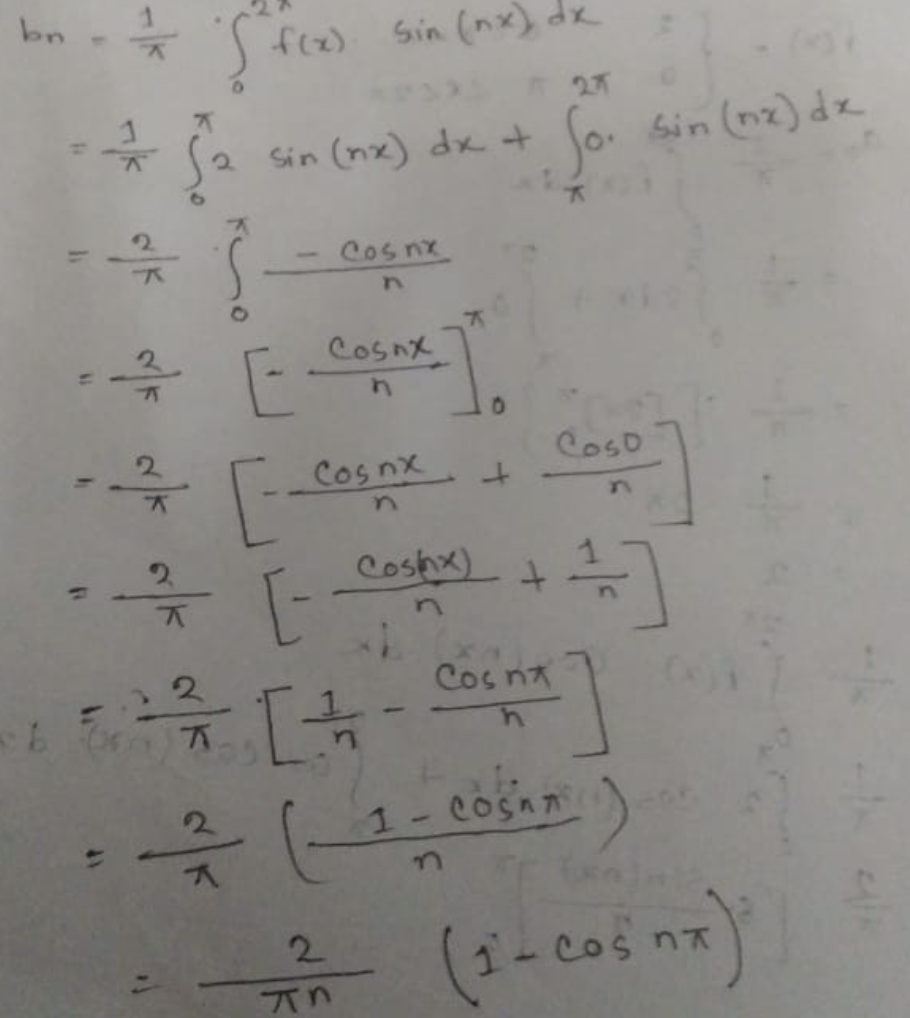 bn = 1/π ∫₀^2π f(x) sin (nx) dx
= 1/π ∫₀^π 2 sin (nx) dx + ∫_π^2π 0. sin (nx) dx
= 2/π ∫₀^π - cos nx / n
= 2/π [- cos nx / n]₀^π
= 2/π [- cos nx / n + cos 0 / n]
= 2/π [- cos(nx) / n + 1/n]
= 2/π [1/n - cos nπ / n]
= 2/π (1 - cos nπ / n)
= 2/πn (1 - cos nπ)